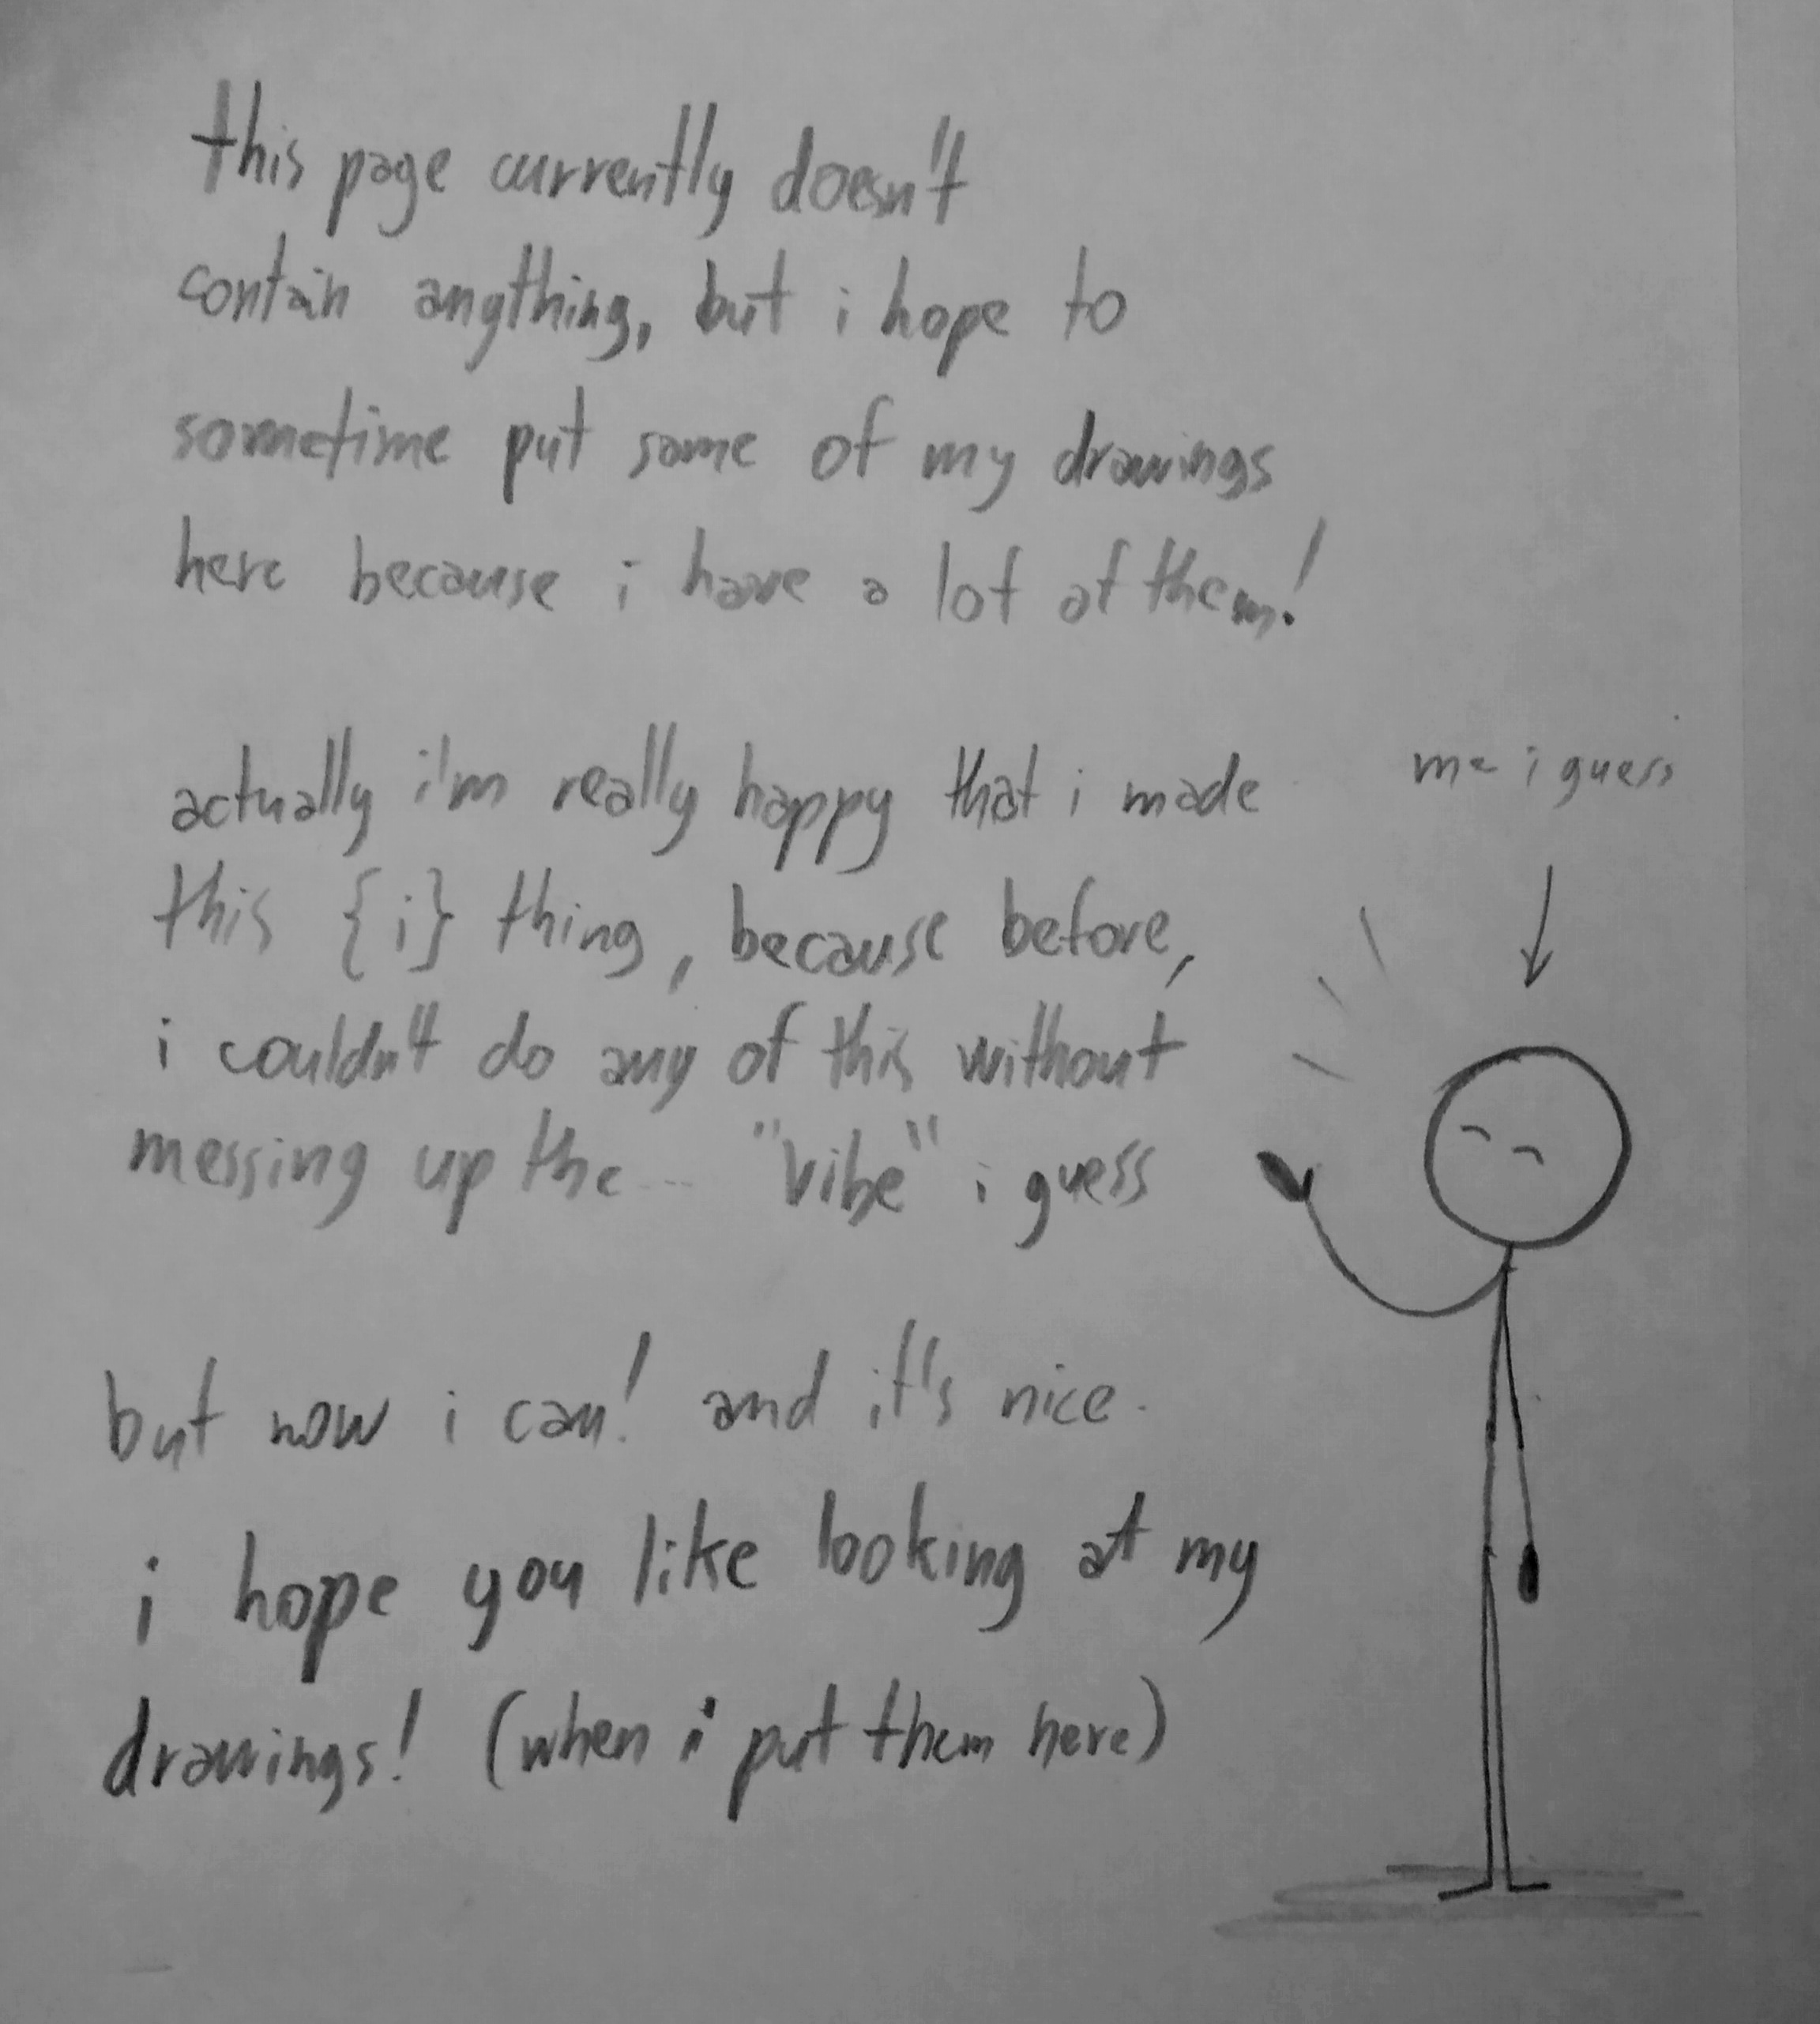 this page currently doesn't
contain anything, but i hope to
sometime put some of my drawings
here because i have a lot of them!
actually i'm really happy that i made
this {i} thing, because before,
i couldn't do any of this without
messing up the... "vibe" i guess
me i guess
but now i can! and it's nice.
i hope you like looking at my
drawings! (when i put them here)